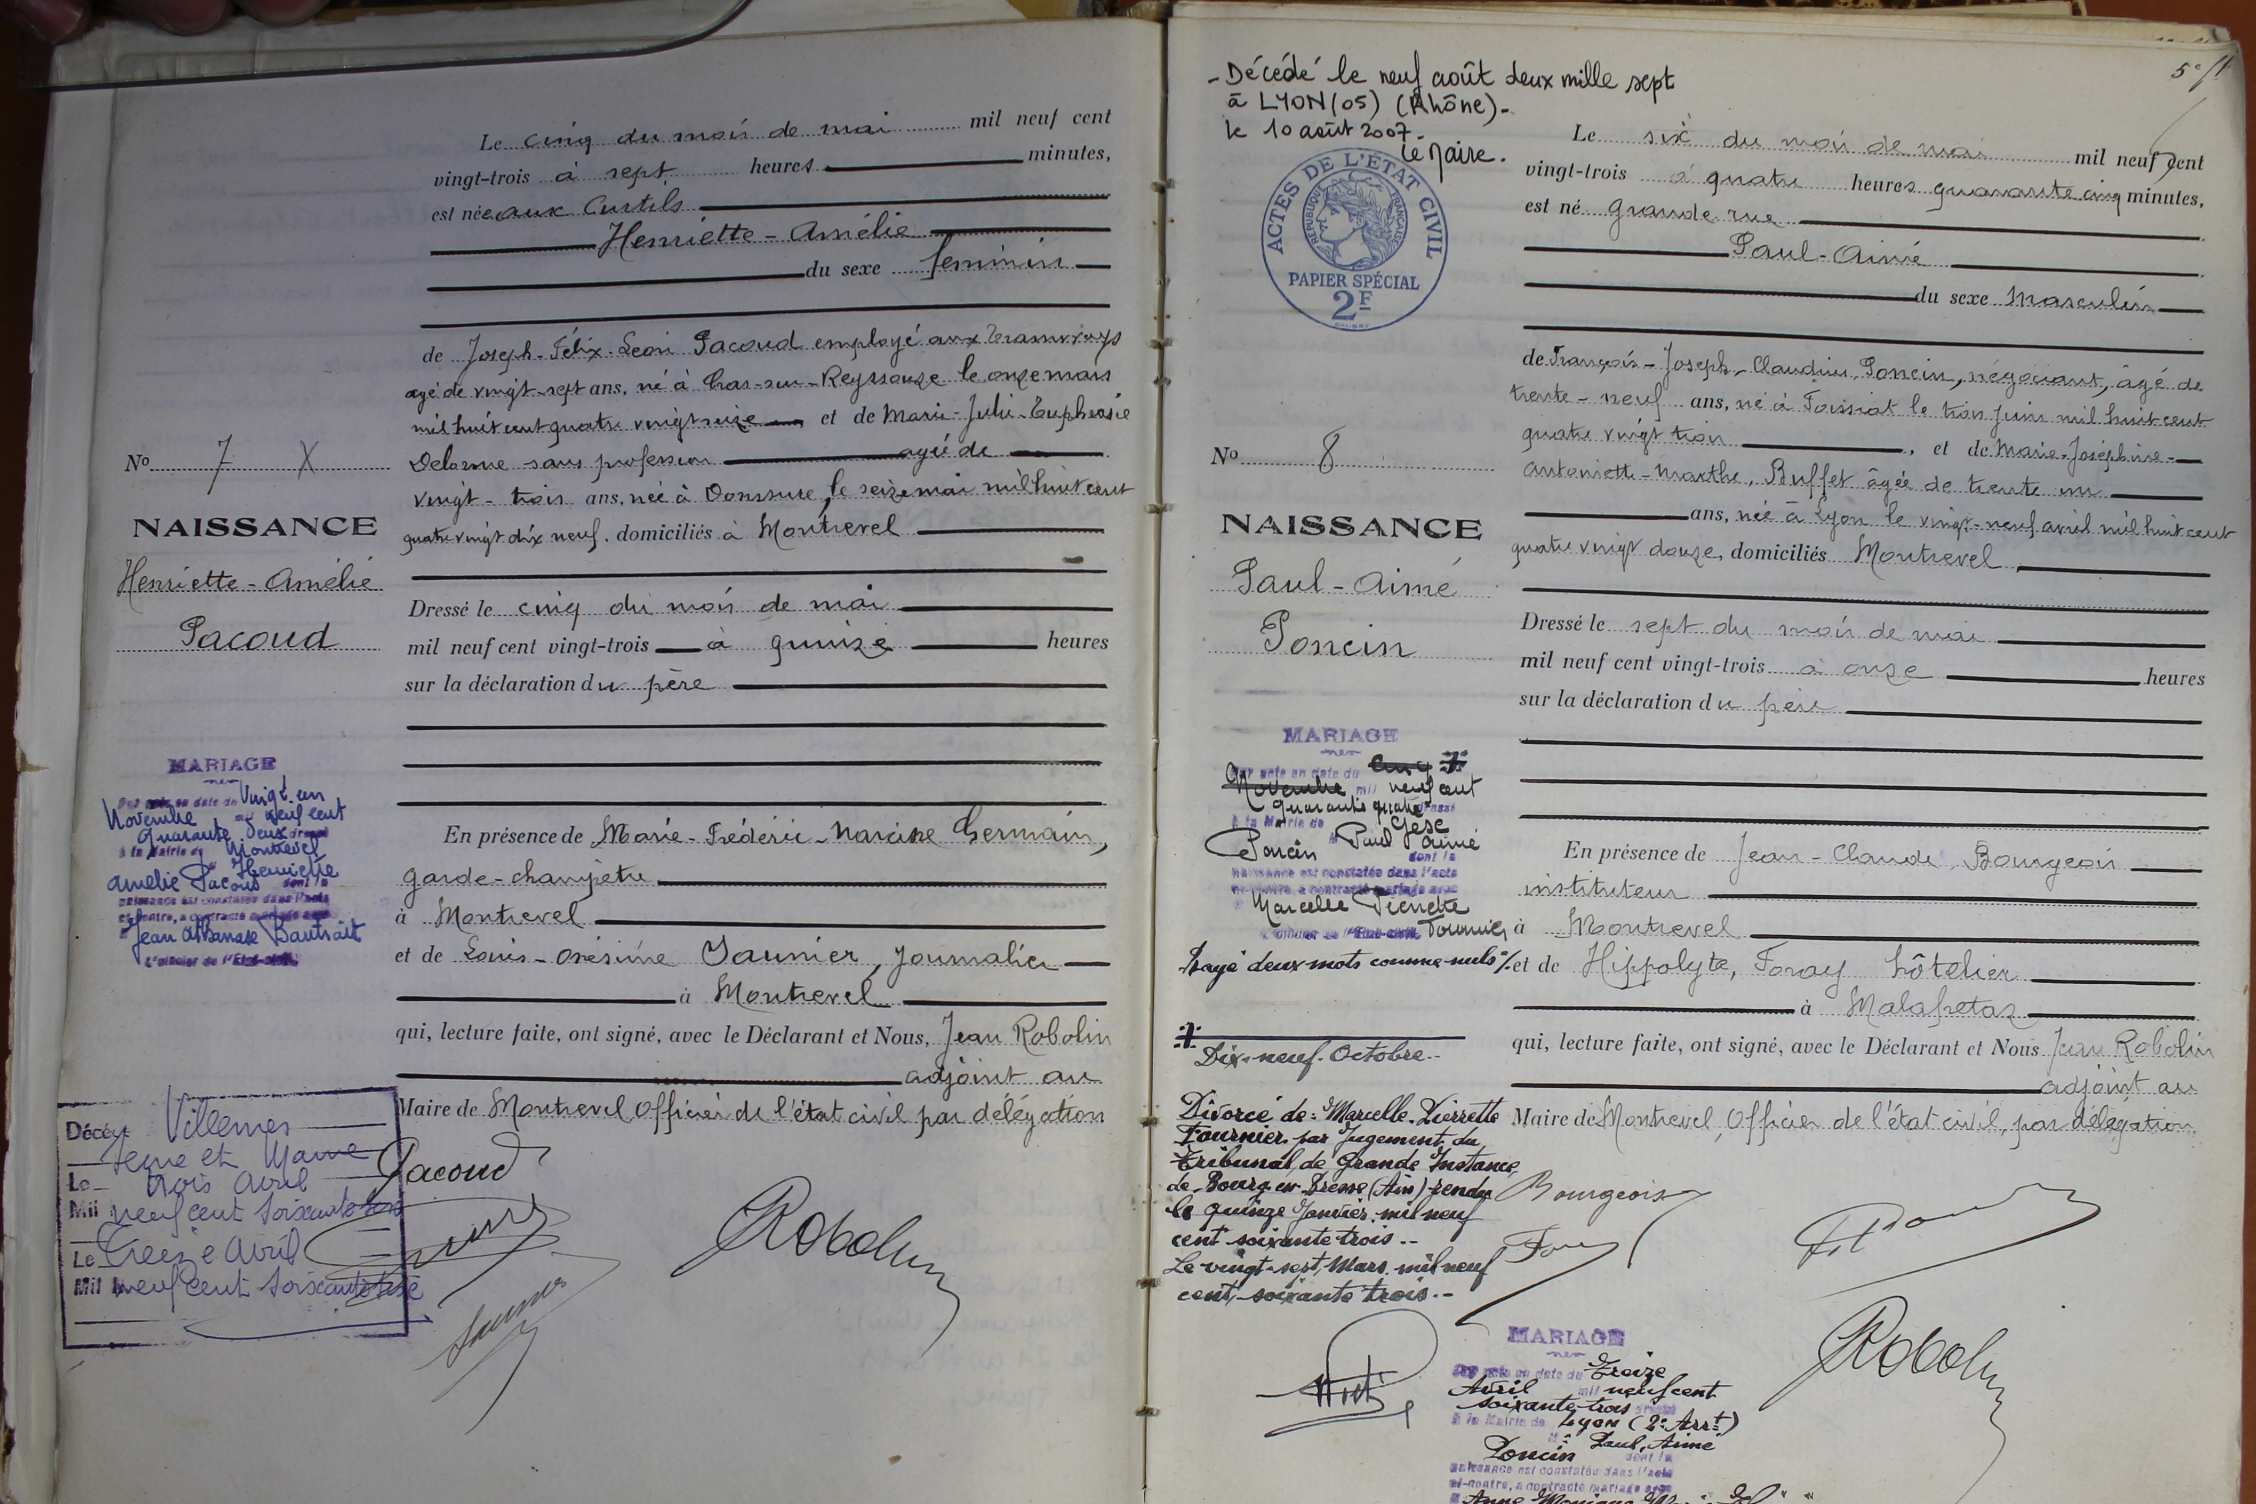 Le cinq du mois de mai mil neuf cent
vingt-trois à sept heures minutes,
est née aux Curtils
Henriette-Amélie
du sexe féminin
de Joseph-Félix-Léon Pacoud employé aux tramways
agé de vingt-sept ans, né à Cras-sur-Reyssouze le onze mars
mil huit cent quatre vingt seize et de Marie-Julie-Euphrasie
Delorme sans profession agée de
vingt-trois ans, née à Domsure, le seize mai mil huit cent
quatre vingt dix neuf. domiciliés à Montrevel
No 7 X
NAISSANCE
Henriette-Amélie
Pacoud
Dressé le cinq du mois de mai
mil neuf cent vingt-trois à quinze heures
sur la déclaration du père
En présence de Marie-Frédéric-Narcisse Germain,
garde-champêtre
à Montrevel
et de Louis-Onésime Saunier, journalier
à Montrevel
qui, lecture faite, ont signé, avec le Déclarant et Nous, Jean Robolin
adjoint au
Maire de Montrevel Officier de l'état civil par délégation
MARIAGE
Par acte en date du Vingt-un
Novembre mil neuf cent
quarante deux dressé
à la Mairie de Montrevel
Henriette
Amélie Pacoud dont la
naissance est constatée dans l'acte
ci-contre, a contracté mariage avec
Jean Athanase Bautrait
L'officier de l'État-civil,
Décédé Villemer
Seine et Marne
Le trois avril
Mil neuf cent soixante
Le Treize avril
Mil neuf cent soixante
Pacoud
Saunier
Robolin
- Décédé le neuf août deux mille sept
à LYON (05) (Rhône)-
le 10 août 2007.
Le Maire.
5e/f
ACTES DE L'ÉTAT CIVIL
RÉPUBLIQUE FRANÇAISE
PAPIER SPÉCIAL
2F
Le six du mois de mai mil neuf cent
vingt-trois à quatre heures quarante cinq minutes,
est né grande rue
Paul-Aimé
du sexe masculin
de François-Joseph-Claudius Poncin, négociant, âgé de
trente-neuf ans, né à Foissiat le trois juin mil huit cent
quatre vingt trois, et de Marie-Joséphine-
Antoinette-Marthe, Buffet âgée de trente un
ans, née à Lyon le vingt-neuf avril mil huit cent
quatre vingt douze, domiciliés Montrevel
No 8
NAISSANCE
Paul-Aimé
Poncin
Dressé le sept du mois de mai
mil neuf cent vingt-trois à onze heures
sur la déclaration du père
En présence de Jean-Claude Bourgeois
instituteur
à Montrevel
et de Hippolyte, Foray hôtelier
à Malafretaz
qui, lecture faite, ont signé, avec le Déclarant et Nous Jean Robolin
adjoint au
Maire de Montrevel, Officier de l'état civil, par délégation
MARIAGE
Par acte en date du Cinq
Novembre mil neuf cent
quarante quatre dressé
à la Mairie de
Poncin Paul Aimé
dont la
naissance est constatée dans l'acte
ci-contre, a contracté mariage avec
Marcelle Pierrette
Fournier
L'officier de l'État-civil,
Rayé deux mots comme nuls
Dix-neuf-Octobre-
Divorcé de: Marcelle-Pierrette
Fournier par Jugement du
Tribunal de Grande Instance
de Bourg en Bresse (Ain) rendu
le quinze Janvier mil neuf
cent soixante-trois.-
Le vingt-sept Mars mil neuf
cent-soixante trois.-
Bourgeois
Foray
Robolin
MARIAGE
Par acte en date du Treize
Avril mil neuf cent
soixante-trois dressé
à la Mairie de Lyon (2e Arrt)
Paul, Aimé
Poncin dont la
naissance est constatée dans l'acte
ci-contre, a contracté mariage avec
Anne Monique